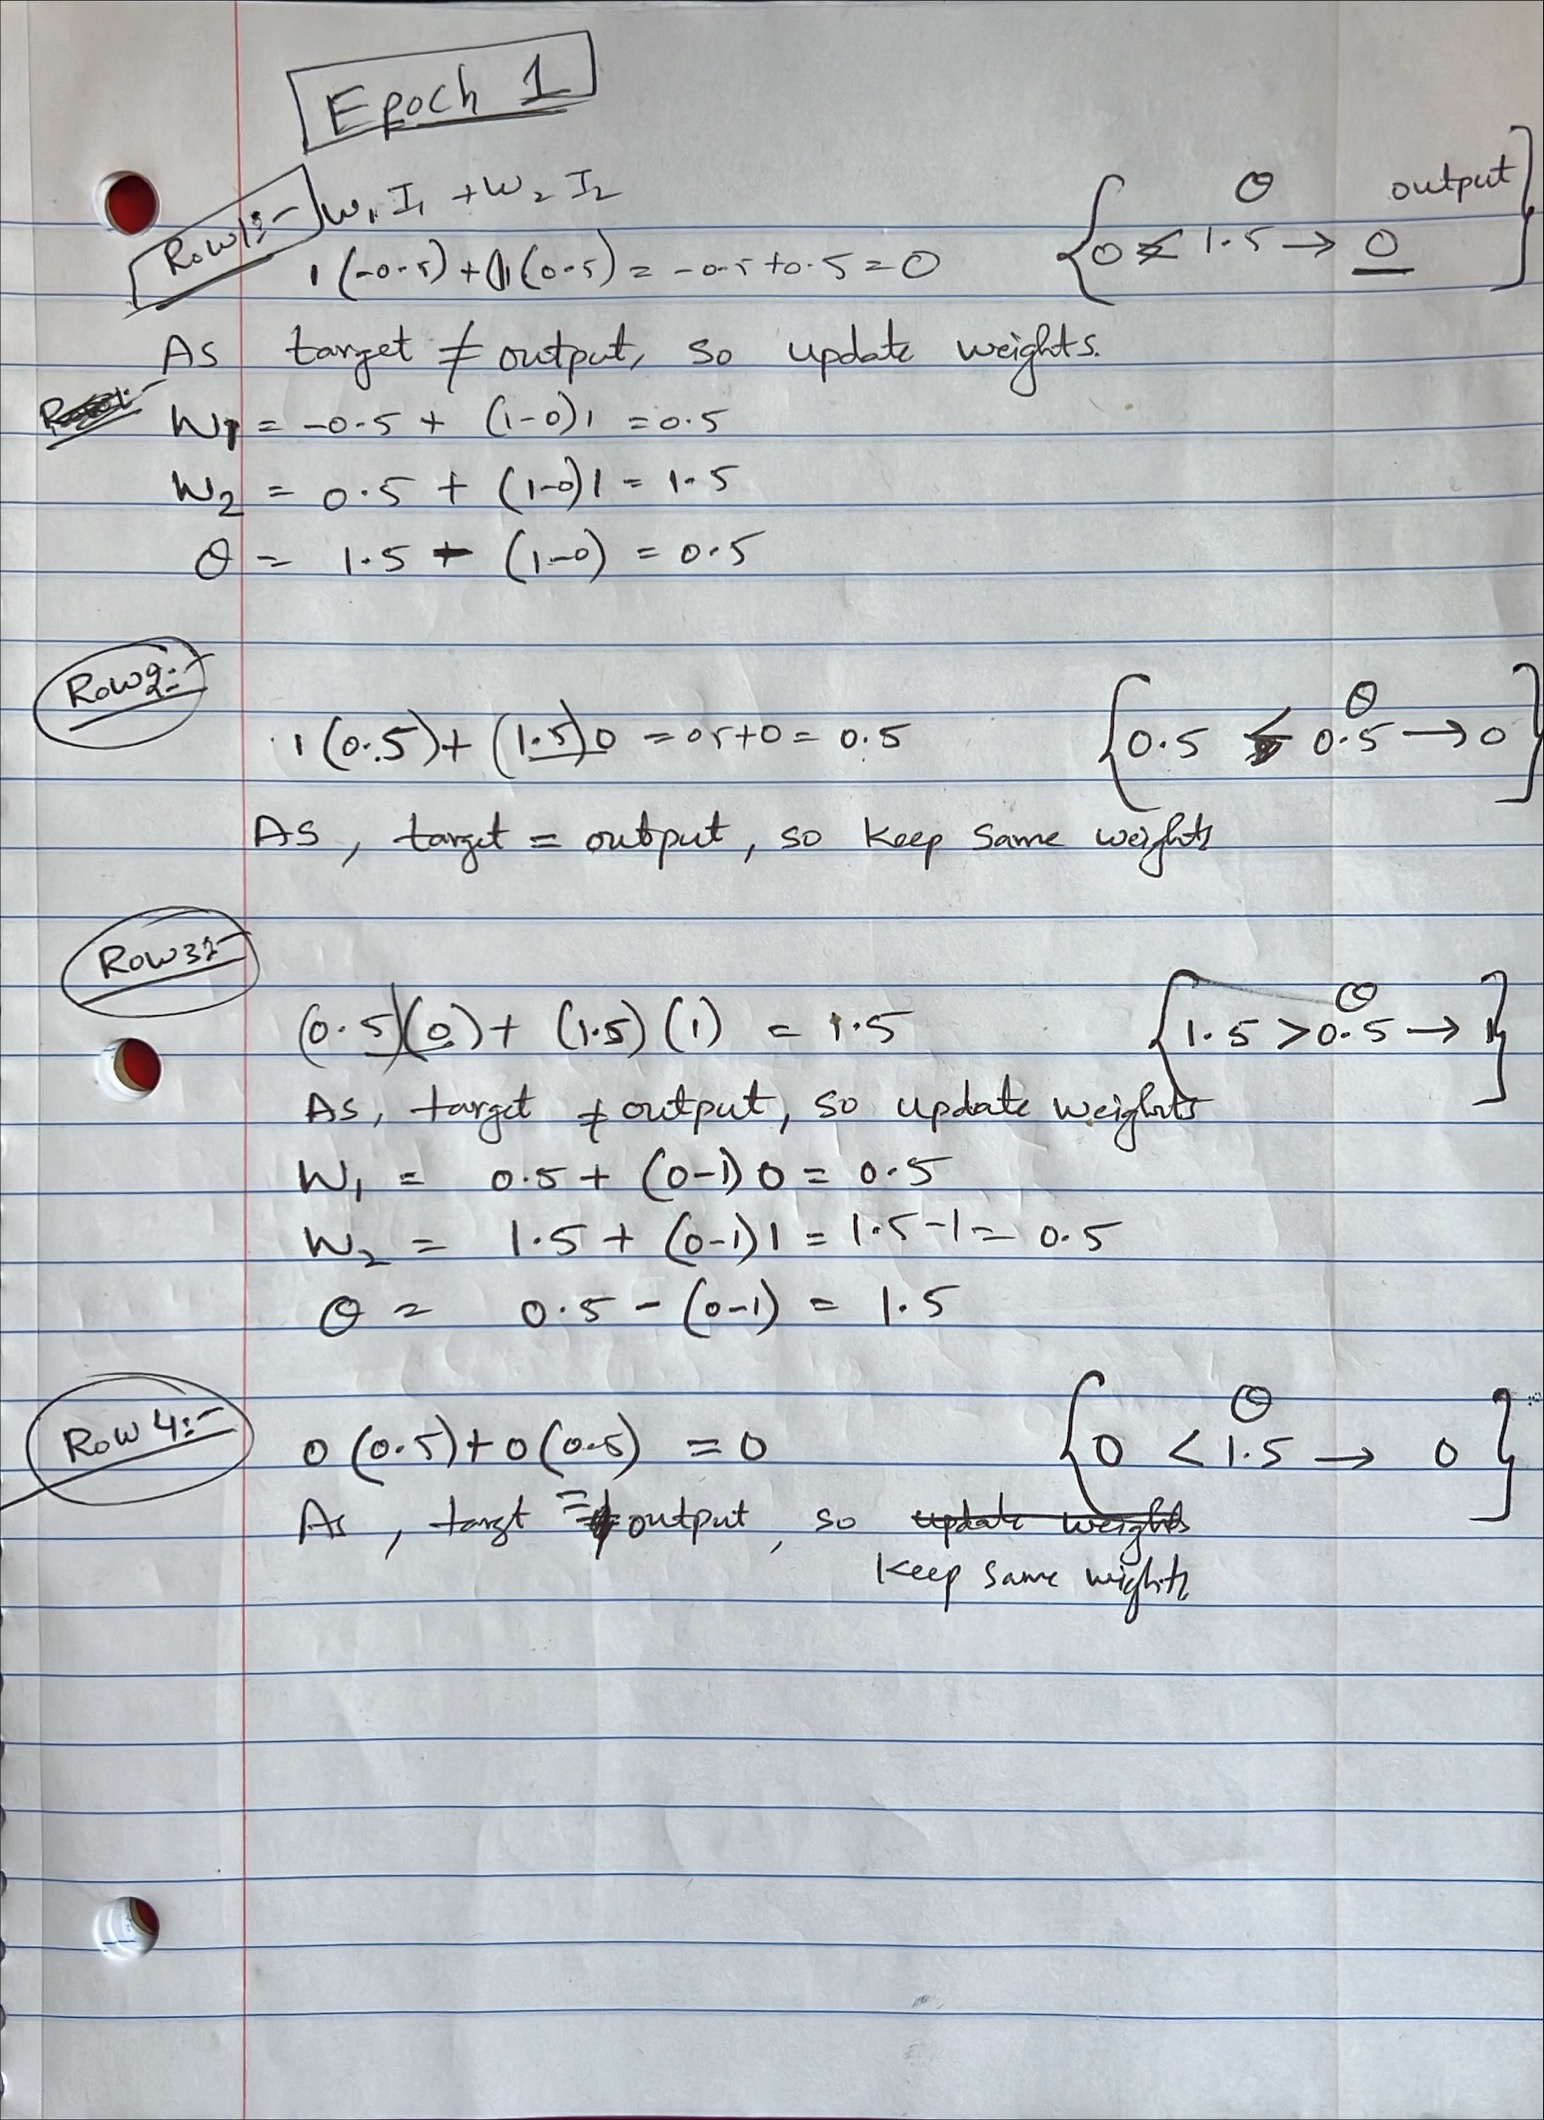 Epoch 1
Row1:- W₁ I₁ + W₂ I₂
1(-0.5) + 1(0.5) = -0.5 + 0.5 = 0 { 0 < 1.5 → 0 ] θ output
As target ≠ output, so update weights.
W₁ = -0.5 + (1-0)1 = 0.5
W₂ = 0.5 + (1-0)1 = 1.5
θ = 1.5 - (1-0) = 0.5
Row2:-
1(0.5) + (1.5)0 = 05+0 = 0.5 { 0.5 ≤ 0.5 → 0 ] θ
As, target = output, so keep same weights
Row3:-
(0.5)(0) + (1.5)(1) = 1.5 { 1.5 > 0.5 → 1 ] θ
As, target ≠ output, so update weights
W₁ = 0.5 + (0-1)0 = 0.5
W₂ = 1.5 + (0-1)1 = 1.5-1 = 0.5
θ = 0.5 - (0-1) = 1.5
Row 4:-
0(0.5) + 0(0.5) = 0 { 0 < 1.5 → 0 ] θ
As, targt = output, so update weights
keep same weights